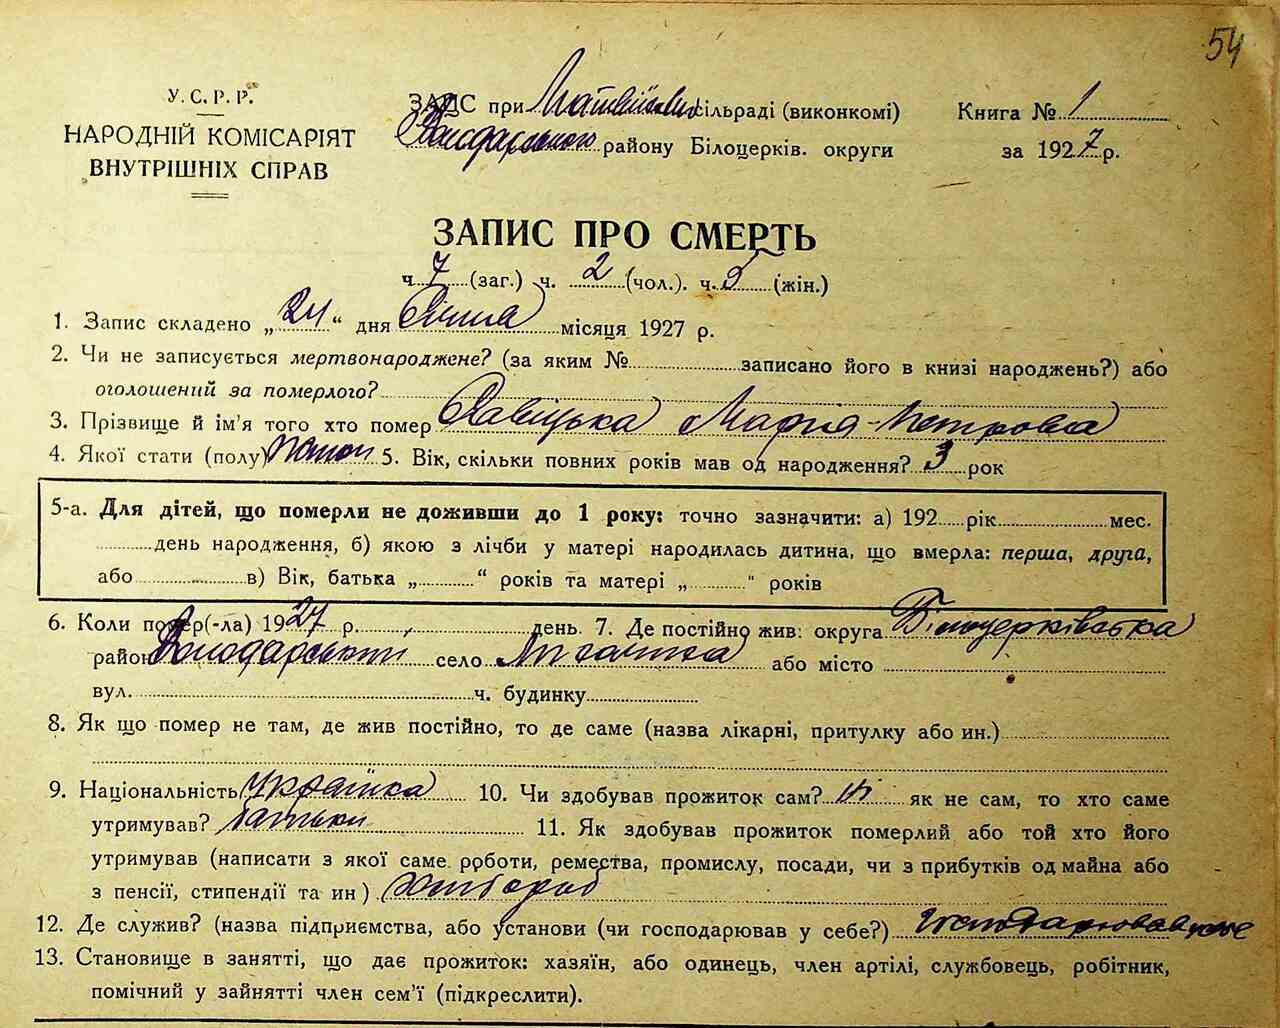 54
У.С.Р.Р.
НАРОДНІЙ КОМІСАРІЯТ
ВНУТРІШНІХ СПРАВ
ЗАГС при сільраді (виконкомі)
Володарського району Білоцерків. округи
Книга № 1
за 1927 р.
ЗАПИС ПРО СМЕРТЬ
ч. 7 (заг.) ч. 2 (чол.). ч. 5 (жін.)
1. Запис складено „24“ дня Січня місяця 1927 р.
2. Чи не записується мертвонароджене? (за яким № записано його в книзі народжень?) або
оголошений за померлого?
3. Прізвище й ім'я того хто помер Савіцька Марія Петрова
4. Якої стати (полу) 5. Вік, скільки повних років мав од народження? 3 рок
5-а. Для дітей, що померли не доживши до 1 року: точно зазначити: а) 192 рік мес.
день народження, б) якою з лічби у матері народилась дитина, що вмерла: перша, друга,
або в) Вік, батька „ “ років та матері „ " років
6. Коли помер(-ла) 1927 р. день. 7. Де постійно жив: округа Білоцерківська
район Володарський село або місто
вул. ч. будинку
8. Як що помер не там, де жив постійно, то де саме (назва лікарні, притулку або ин.)
9. Національність Українка 10. Чи здобував прожиток сам? ні як не сам, то хто саме
утримував? батьки 11. Як здобував прожиток померлий або той хто його
утримував (написати з якої саме роботи, ремества, промислу, посади, чи з прибутків од майна або
з пенсії, стипендії та ин) хлібороб
12. Де служив? (назва підприємства, або установи (чи господарював у себе?)
13. Становище в занятті, що дає прожиток: хазяїн, або одинець, член артілі, службовець, робітник,
помічний у зайнятті член сем'ї (підкреслити).